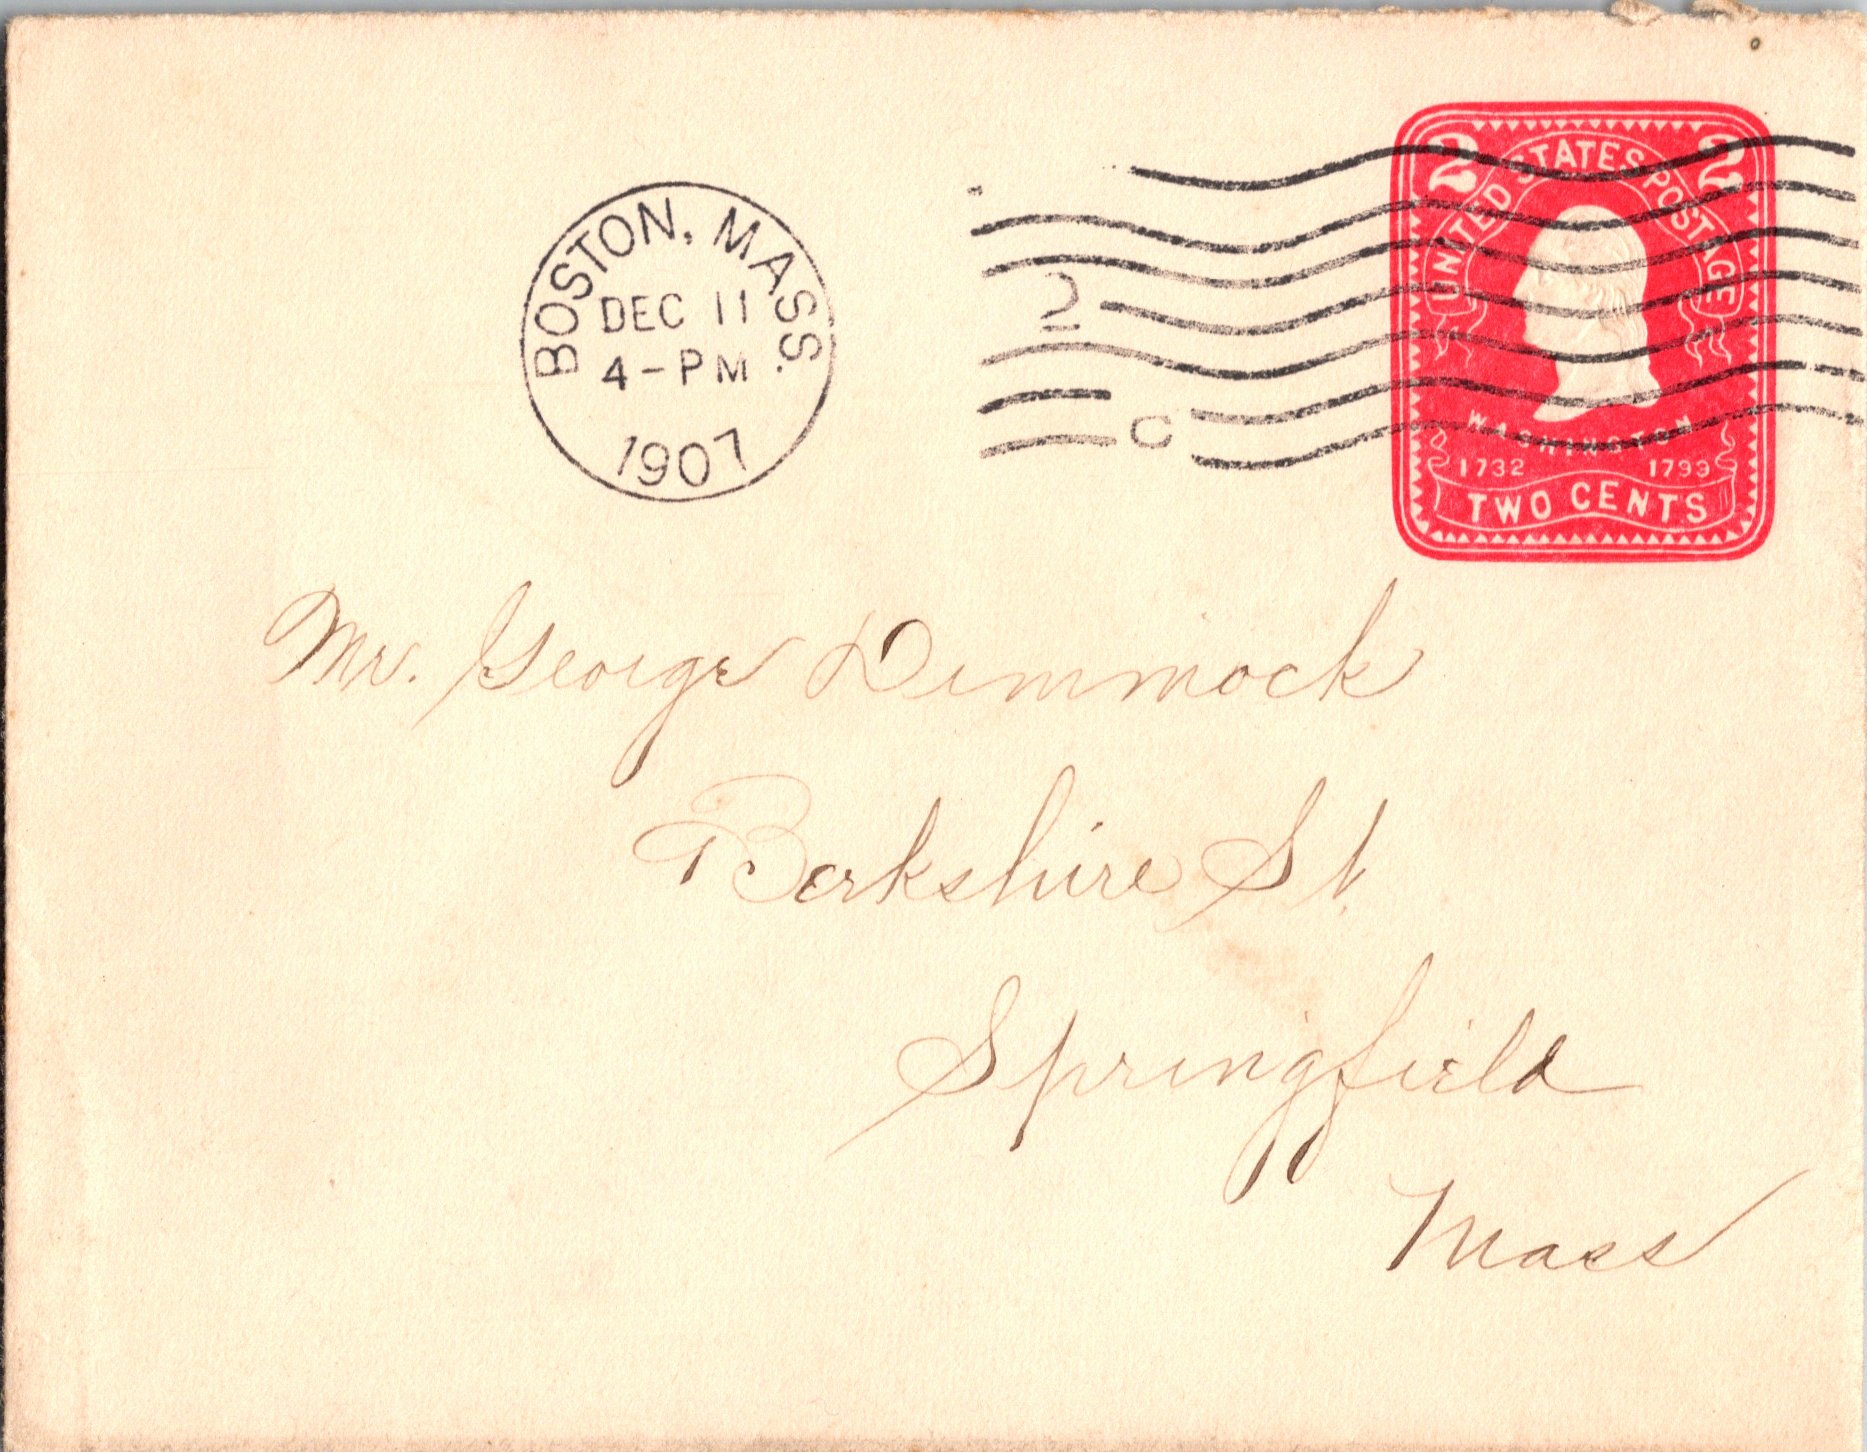 BOSTON, MASS.
DEC 11
4-PM
1907
2
C
2 2
UNITED STATES POSTAGE
WASHINGTON
1732 1799
TWO CENTS
Mr. George Dimmock
Berkshire St.
Springfield
Mass